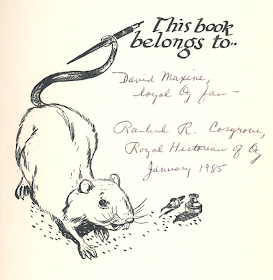 This book
belongs to..
David Maxine,
loyal Oz fan —
Rachel R. Cosgrove,
Royal Historian of Oz
January 1985